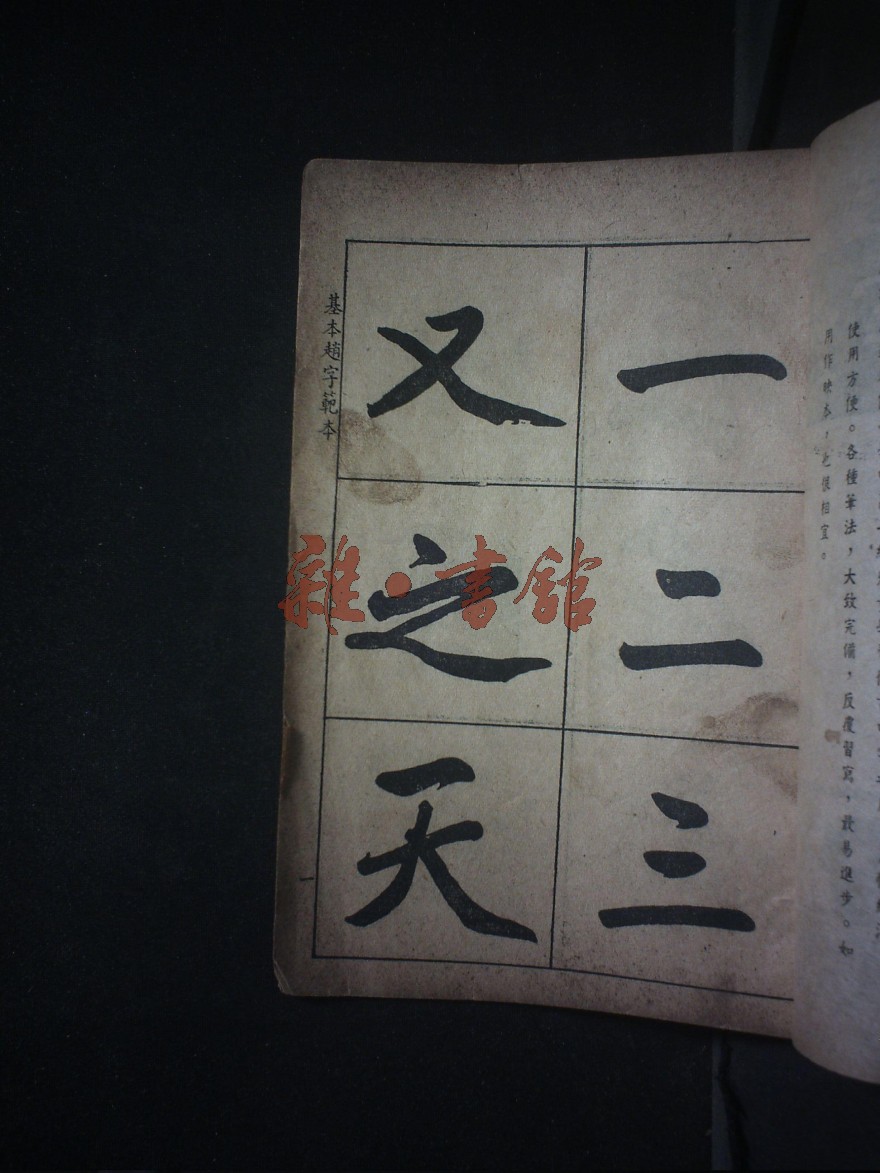 使用方便。各種筆法，大致完備，反覆習寫，最易進步。如
用作映本，尤極相宜。
一二三
又之天
基本趙字範本
一
雜·書館